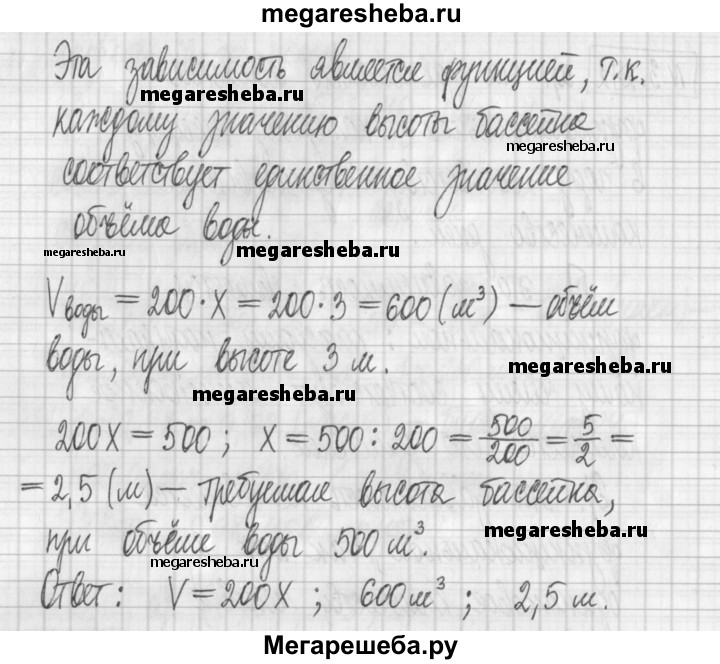 megaresheba.ru
Эта зависимость является функцией, т.к.
megaresheba.ru
каждому значению высоты бассейна
megaresheba.ru
соответствует единственное значение
объёма воды.
megaresheba.ru megaresheba.ru
Vводы = 200·x = 200·3 = 600 (м³) — объём
воды, при высоте 3 м.
megaresheba.ru
megaresheba.ru
200x = 500; x = 500 : 200 = 500/200 = 5/2 =
= 2,5 (м) — требуемая высота бассейна,
megaresheba.ru
при объёме воды 500 м³.
megaresheba.ru
Ответ: V = 200x ; 600 м³ ; 2,5 м.
Мегарешеба.ру